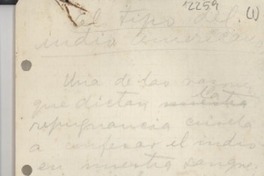 12259 (1)
El tipo del
indio americano
Una de las razones
que dictan
repugnancia criolla
a confesar el indio
en nuestra sangre